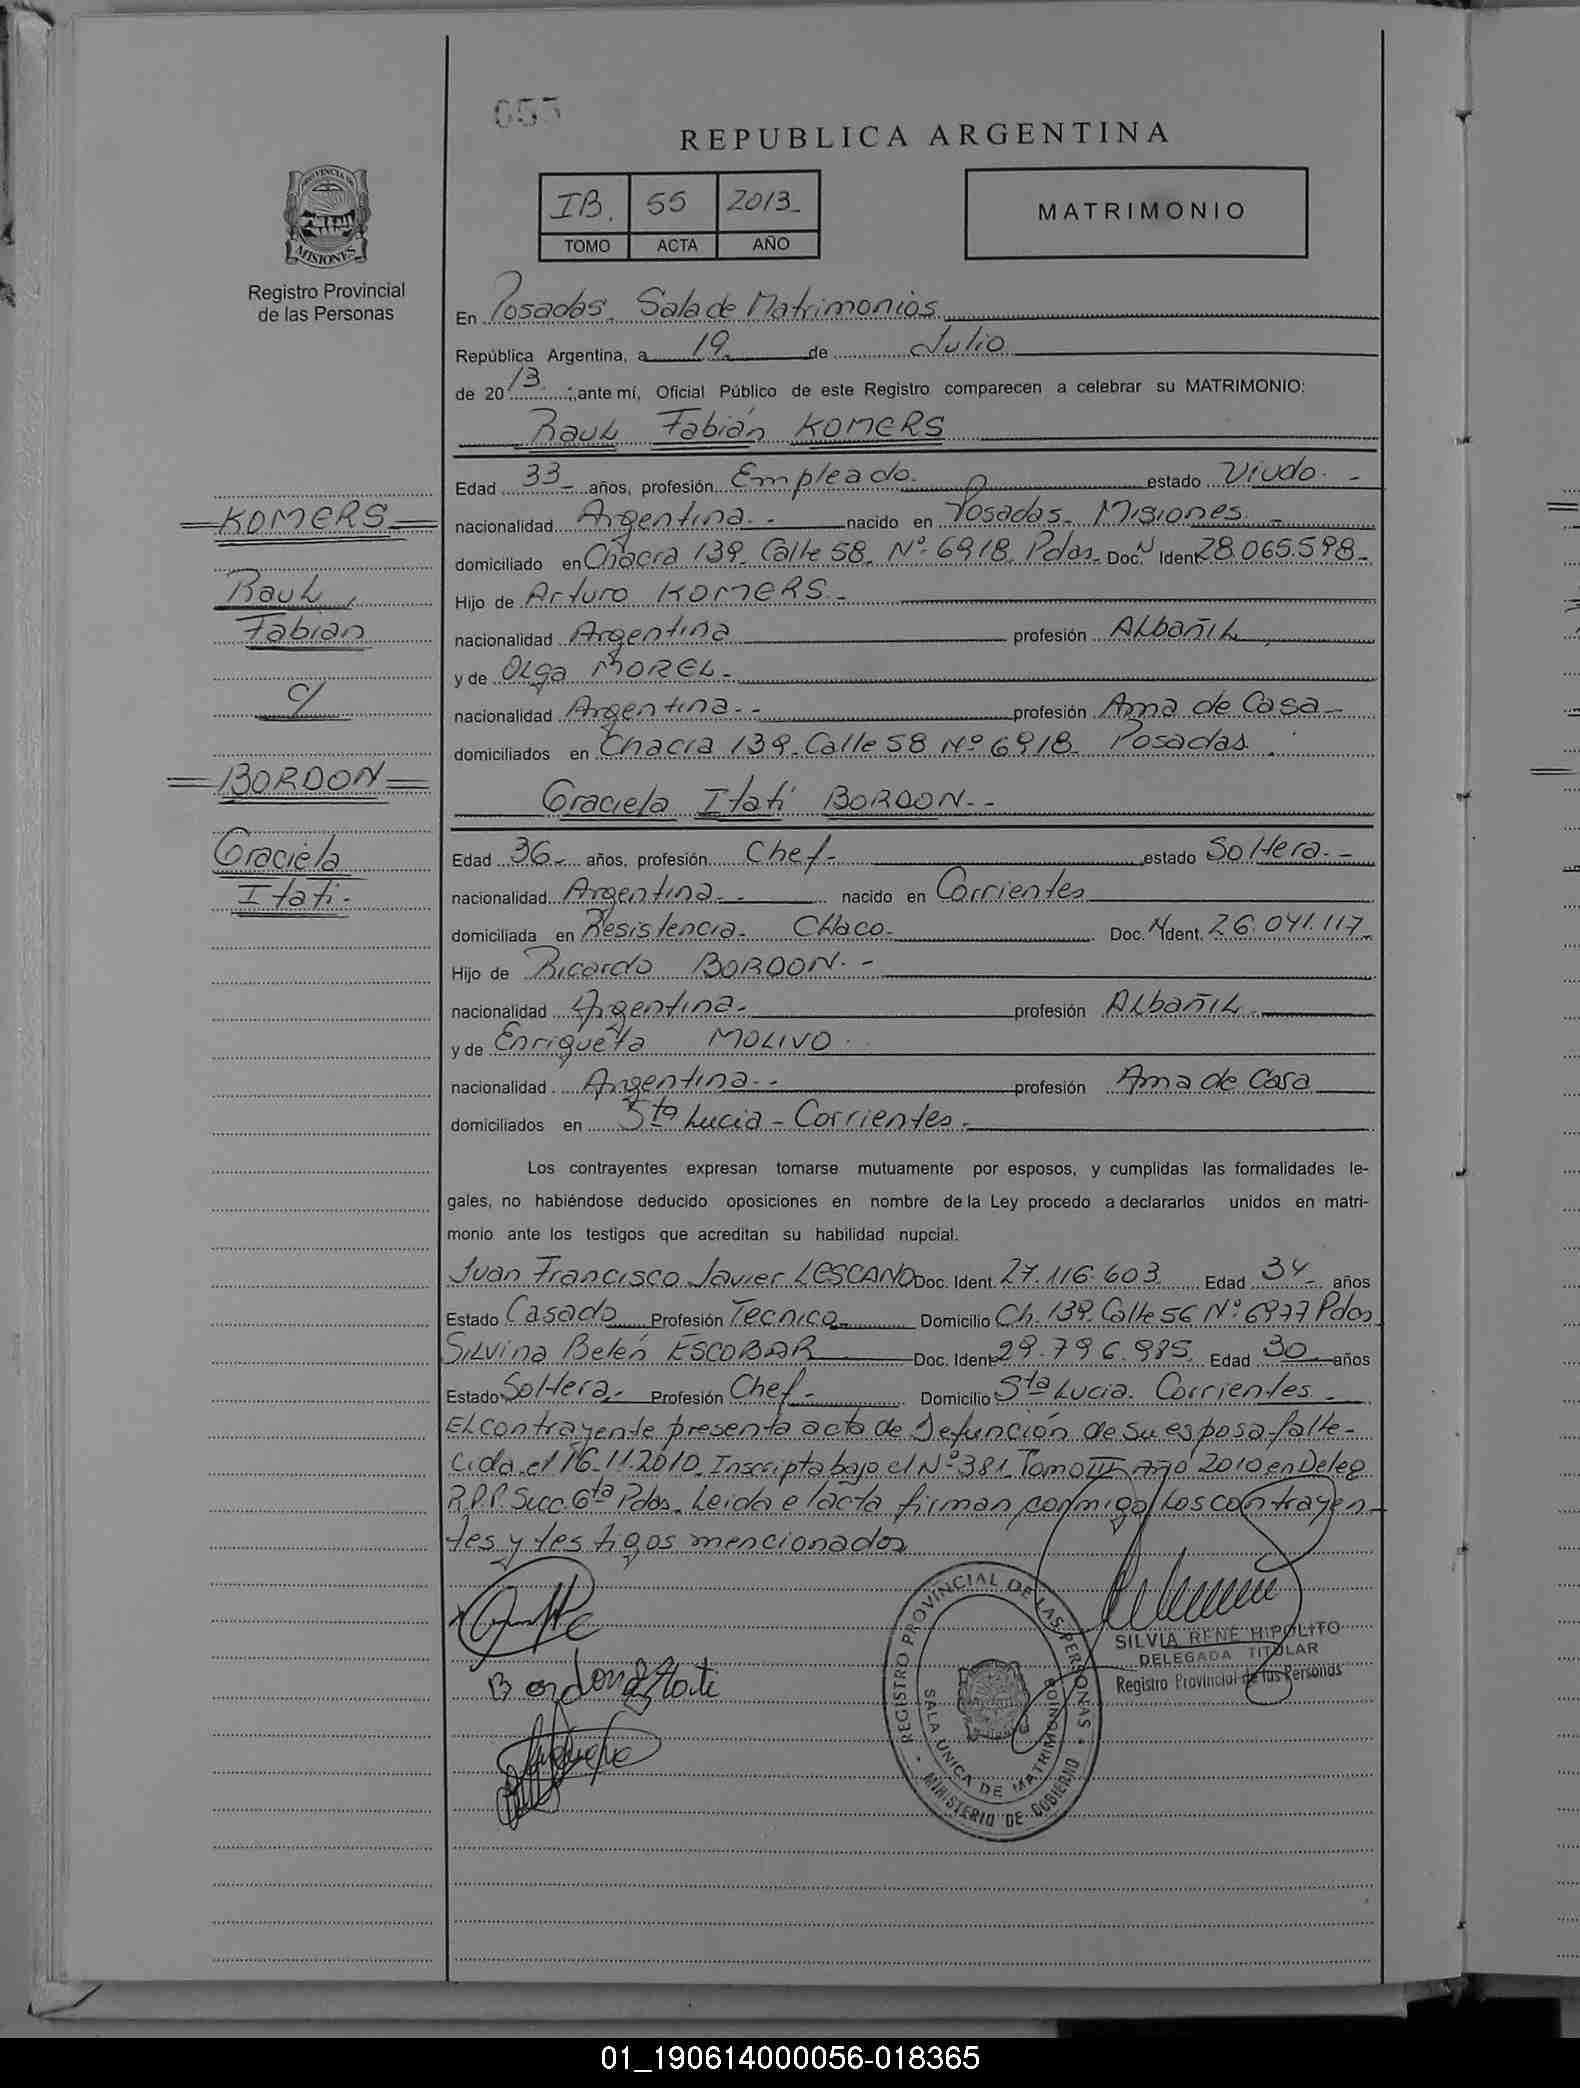 055
REPUBLICA ARGENTINA
PROVINCIA DE
MISIONES
Registro Provincial
de las Personas
IB. 55 2013
TOMO ACTA AÑO
MATRIMONIO
En Posadas. Sala de Matrimonios
República Argentina, a 19 de Julio
de 2013 ; ante mí, Oficial Público de este Registro comparecen a celebrar su MATRIMONIO:
Raul Fabián KOMERS
Edad 33 años, profesión Empleado. estado Viudo.-
nacionalidad Argentina.- nacido en Posadas- Misiones-
domiciliado en Chacra 139. Calle 58. Nº 6918. Pdas- Doc. N Ident. 28.065.598-
Hijo de Arturo KOMERS.-
nacionalidad Argentina profesión Albañil
y de Olga MOREL-
nacionalidad Argentina.- profesión Ama de Casa-
domiciliados en Chacra 139. Calle 58 Nº 6918- Posadas.
KOMERS
Raul
Fabian
c/
BORDON
Graciela
Itati-
Graciela Itatí BORDON.-
Edad 36- años, profesión Chef- estado Soltera.-
nacionalidad Argentina.- nacido en Corrientes
domiciliada en Resistencia- CHaco- Doc. N Ident. 26.041.117-
Hijo de Ricardo BORDON.-
nacionalidad Argentina- profesión Albañil
y de Enriqueta MOLIVO
nacionalidad Argentina.- profesión Ama de Casa
domiciliados en Sta Lucia - Corrientes-
Los contrayentes expresan tomarse mutuamente por esposos, y cumplidas las formalidades le-
gales, no habiéndose deducido oposiciones en nombre de la Ley procedo a declararlos unidos en matri-
monio ante los testigos que acreditan su habilidad nupcial.
Juan Francisco Javier LESCANO Doc. Ident. 27.116.603 Edad 34 años
Estado Casado Profesión Tecnico Domicilio Ch. 139. Calle 56 Nº 6977 Pdas
Silvina Belén ESCOBAR Doc. Ident. 29.796.985 Edad 30 años
Estado Soltera- Profesión Chef- Domicilio Sta Lucia. Corrientes-
El contrayente presenta acta de Defunción de su esposa falle-
cida el 16-11-2010. Inscripta bajo el Nº 381 Tomo III Año 2010 en Deleg
R.P.P. Secc. 6ta Pdas. Leida el acta firman conmigo los contrayen-
tes y testigos mencionados
Bordon G Itati
REGISTRO PROVINCIAL DE LAS PERSONAS
SALA UNICA DE MATRIMONIOS
MINISTERIO DE GOBIERNO
SILVIA RENE HIPOLITO
DELEGADA TITULAR
Registro Provincial de las Personas
01_190614000056-018365